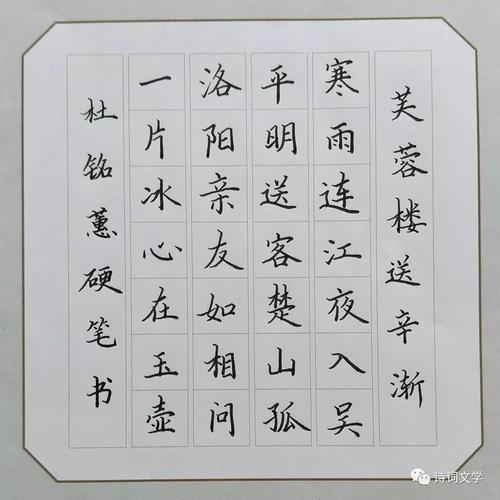 芙蓉楼送辛渐
寒雨连江夜入吴
平明送客楚山孤
洛阳亲友如相问
一片冰心在玉壶
杜铭蕙硬笔书
诗词文学